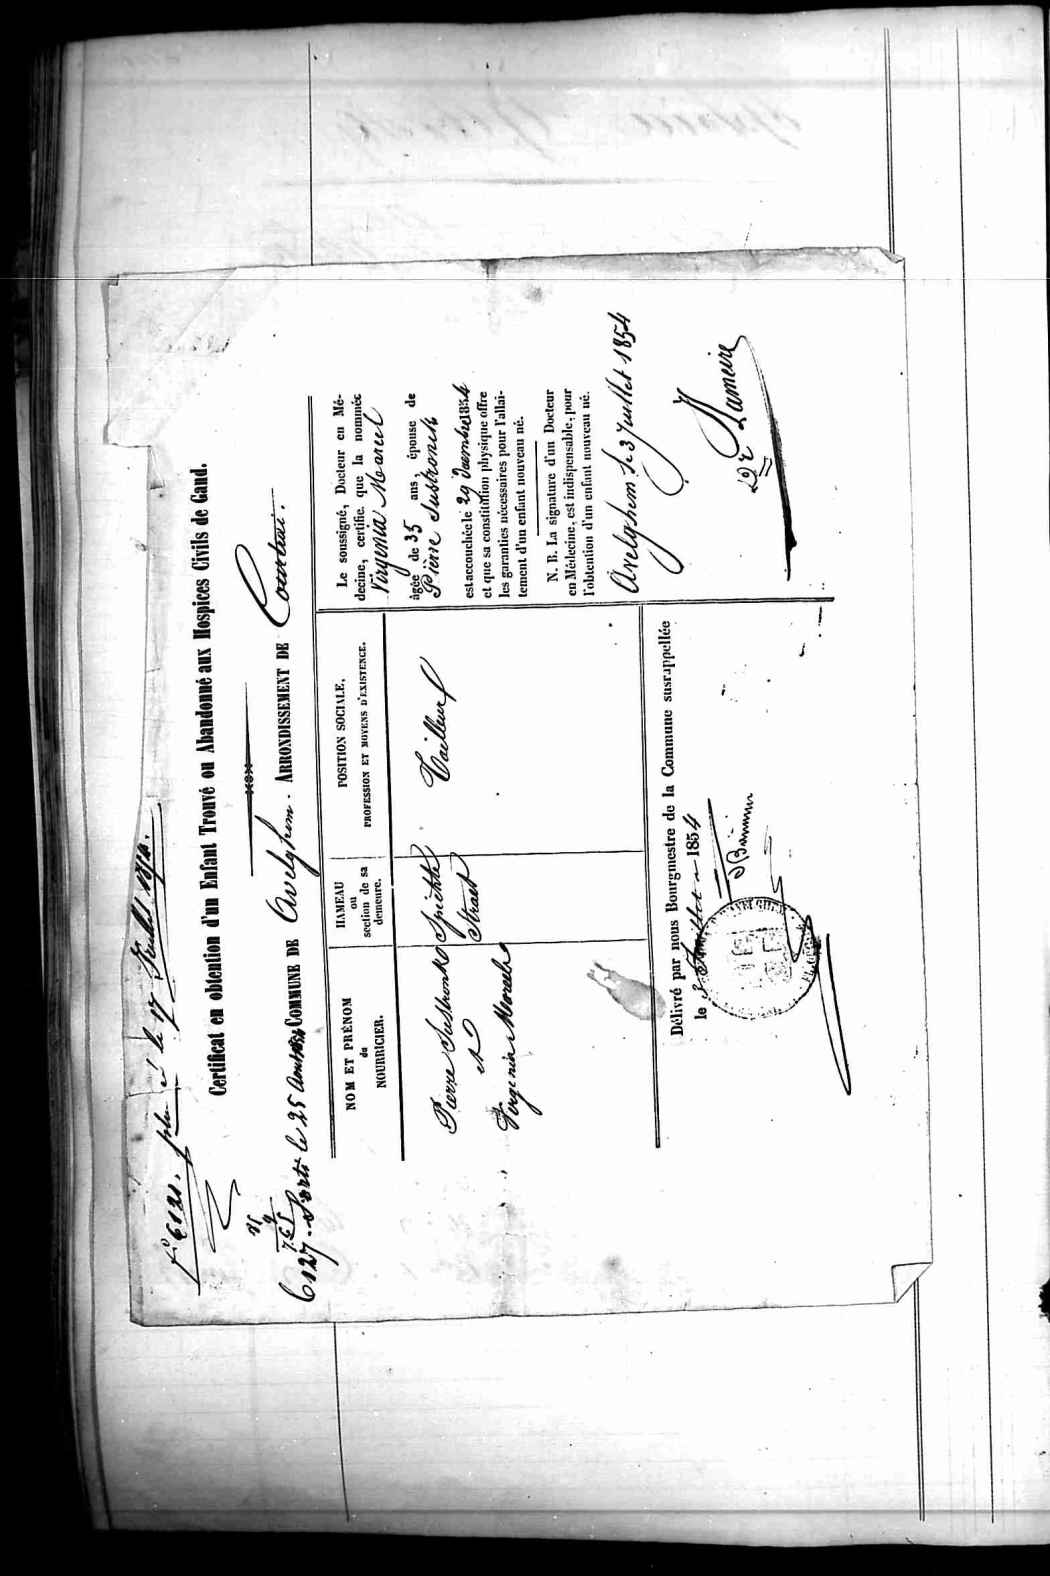 N° 6121. placé le 17 Juillet 1854.
Certificat en obtention d'un Enfant Trouvé ou Abandonné aux Hospices Civils de Gand.
6127. Parti le 25
COMMUNE DE Avelghem. ARRONDISSEMENT DE Courtrai.
NOM ET PRÉNOM
du
NOURRICIER.
HAMEAU
ou
section de sa
demeure.
POSITION SOCIALE,
PROFESSION ET MOYENS D'EXISTENCE.
Pierre
et
Virginie
Straet
Tailleur
Le soussigné, Docteur en Mé-
decine, certifie que la nommée
Virginia
âgée de 35 ans, épouse de
Pierre
est accouchée le 29 1854
et que sa constitution physique offre
les garanties nécessaires pour l'allai-
tement d'un enfant nouveau né.
N. B. La signature d'un Docteur
en Médecine, est indispensable, pour
l'obtention d'un enfant nouveau né.
Avelghem le 3 Juillet 1854
Dr Lameire
Délivré par nous Bourgmestre de la Commune susrappellée
le 3 Juillet 1854